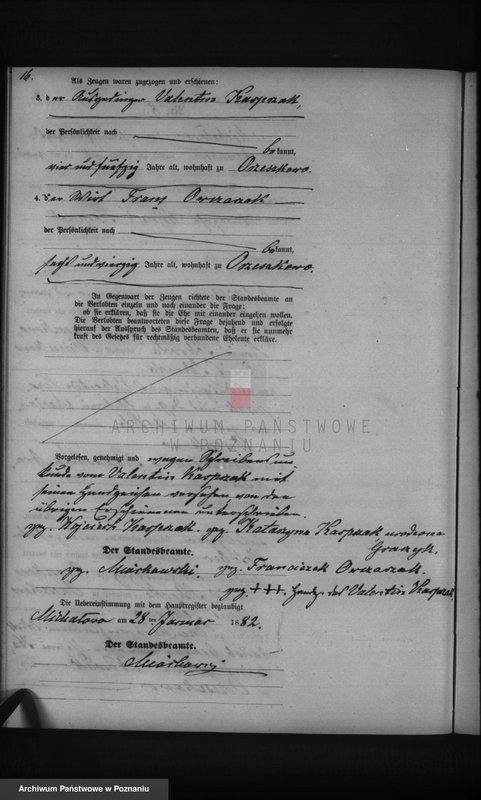 16.
Als Zeugen waren zugezogen und erschienen:
3. der Ausgedinger Valentin Kasprzak,
der Persönlichkeit nach
bekannt,
vier und fünfzig Jahre alt, wohnhaft zu Orzeszkowo.
4. der Wirt Franz Owczarzak
der Persönlichkeit nach
bekannt,
sechs und vierzig Jahre alt, wohnhaft zu Orzeszkowo.
In Gegenwart der Zeugen richtete der Standesbeamte an
die Verlobten einzeln und nach einander die Frage:
ob sie erklären, daß sie die Ehe mit einander eingehen wollen.
Die Verlobten beantworteten diese Frage bejahend und erfolgte
hierauf der Ausspruch des Standesbeamten, daß er sie nunmehr
kraft des Gesetzes für rechtmäßig verbundene Eheleute erkläre.
ARCHIWUM PAŃSTWOWE
W POZNANIU
Vorgelesen, genehmigt und wegen Schreibens un
kunde vom Valentin Kasprzak mit
seinen Handzeichen versehen von den
übrigen Erschienenen unterschrieben.
gez. Wojciech Kasprzak. gez. Katarzyna Kasprzak urodzona
Der Standesbeamte. gez. Franciszek
gez. +++ Handz. des Valentin Kasprzak
Die Uebereinstimmung mit dem Hauptregister beglaubigt
am 28ten Januar 1882.
Der Standesbeamte.
Archiwum Państwowe w Poznaniu